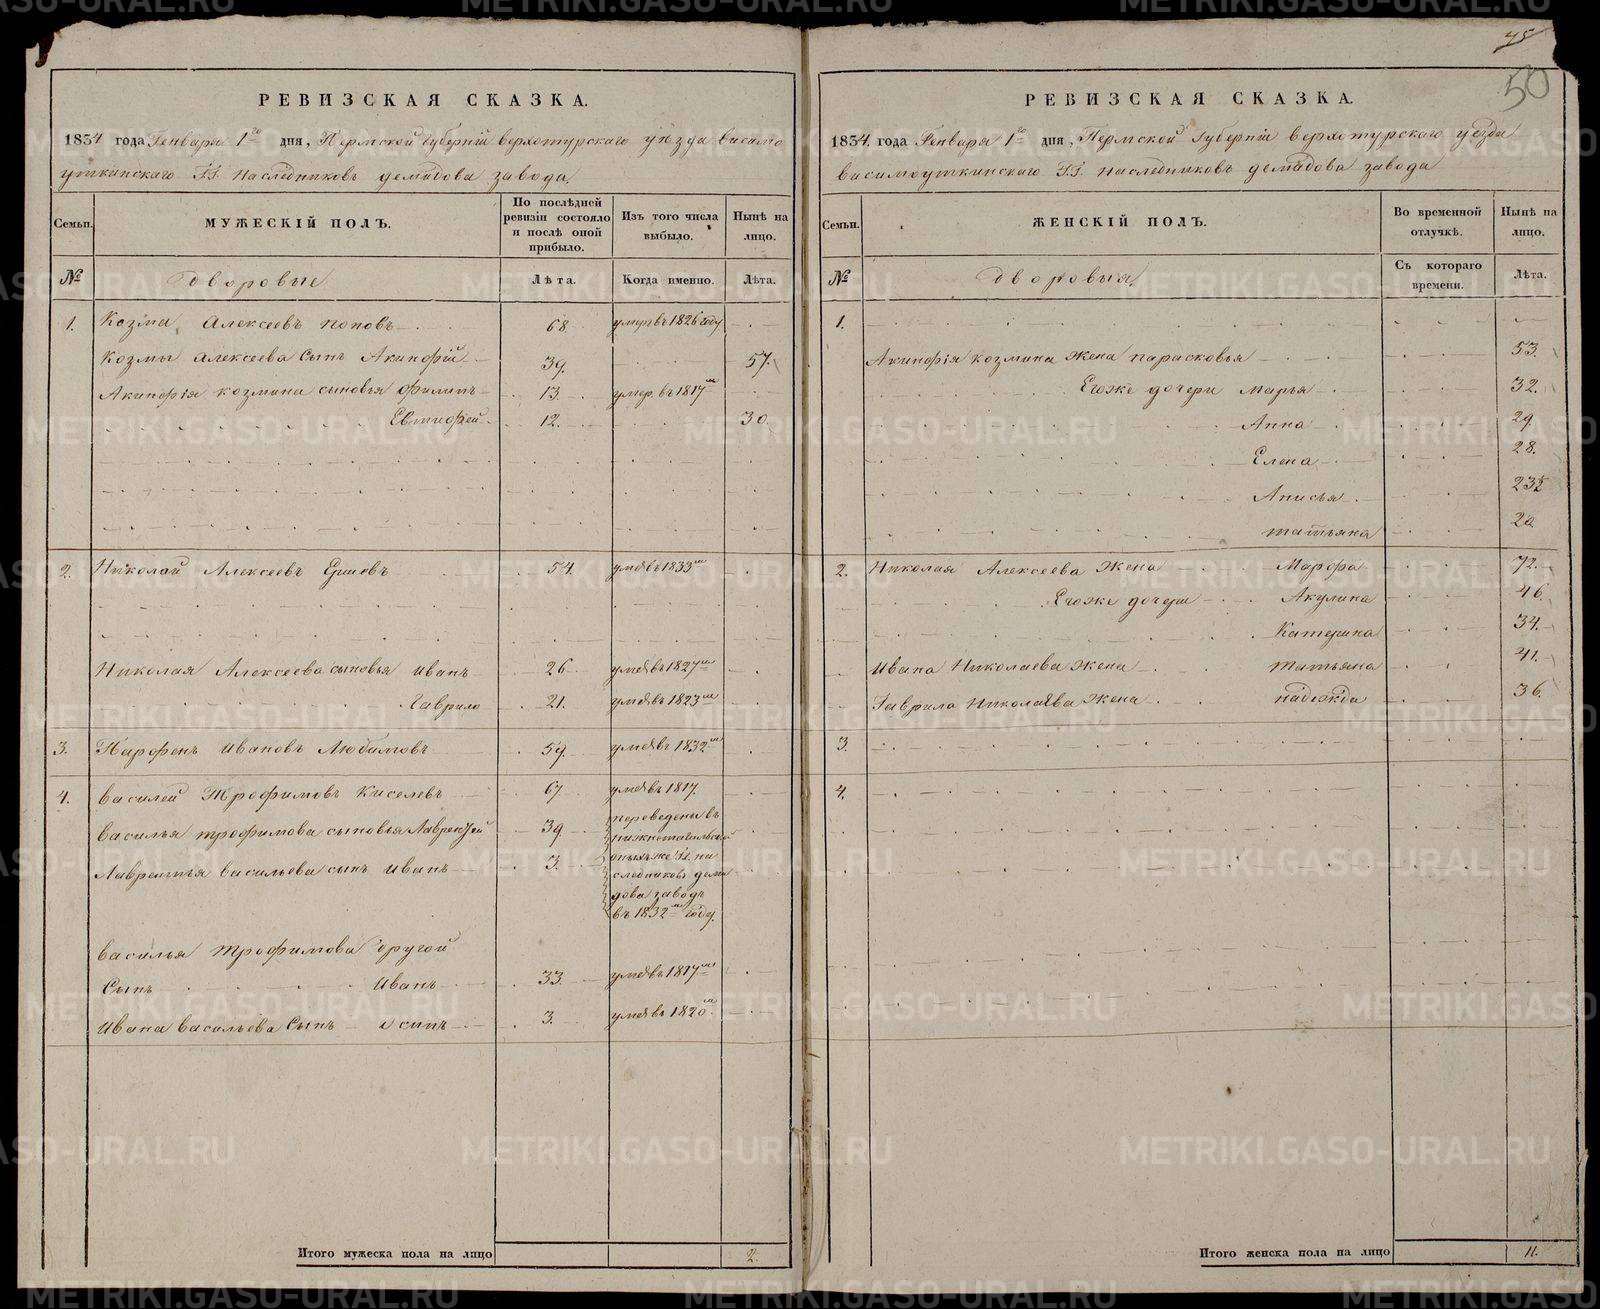 75
50
РЕВИЗСКАЯ СКАЗКА.
1834 года Генваря 1го дня, Пермской Губерніи верхотурскаго уѣзда васило
уткинскаго Г.Г. наслѣдниковъ демидова завода.
Семьи.
МУЖЕСКІЙ ПОЛЪ.
По послѣдней ревизіи состояло и послѣ оной прибыло.
Изъ того числа выбыло.
Нынѣ на лицо.
№
дворовые
Лѣта.
Когда именно.
Лѣта.
1. Козма Алексеевъ поповъ 68. умеръ въ 1826 году
Козмы алексеева Сынъ Акинфій 39. 57.
Акинфія козмина сыновья филипъ 13. умер. въ 1817м
Евтифей 12. 30.
2. Николай Алексеевъ Ершовъ 54. умеръ въ 1833м
Николая Алексеева сыновья иванъ 26. умеръ въ 1827м
Гаврило 21. умеръ въ 1823м
3. Парфенъ ивановъ Любимовъ 59. умеръ въ 1832м
4. василей Трофимовъ Киселевъ 67 умеръ въ 1817.
василья трофимова сыновья Лаврентей 39 переведены въ
нижнетагильской
Лаврентья васильева сынъ иванъ 3. оныхъ же Гг. на
следниковъ деми
дова заводъ
въ 1832м году.
василья трофимова другой
Сынъ иванъ 33. умеръ въ 1817м
ивана васильева Сынъ осипъ 3. умеръ въ 1820м
Итого мужеска пола на лицо 2.
РЕВИЗСКАЯ СКАЗКА.
1834. года Генваря 1го дня, Пермской Губерніи верхотурскаго уѣзда
василоуткинскаго Г.Г. наслѣдниковъ демидова завода
Семьи.
ЖЕНСКІЙ ПОЛЪ.
Во временной отлучкѣ.
Нынѣ на лицо.
№
дворовыя
Съ котораго времени.
Лѣта.
1.
Акинфія козмина жена парасковья 53.
Егоже дочери марья 32.
Анна 29.
Елена 28.
Анисья
татьяна 20
2. Николая Алексеева жена Марфа 72.
Егоже дочери Акулина 46.
Катерина 34.
ивана Николаева жена татьяна 41.
Гаврила Николаева жена надежда 36.
3.
4.
Итого женска пола на лицо 11.
METRIKI.GASO-URAL.RU